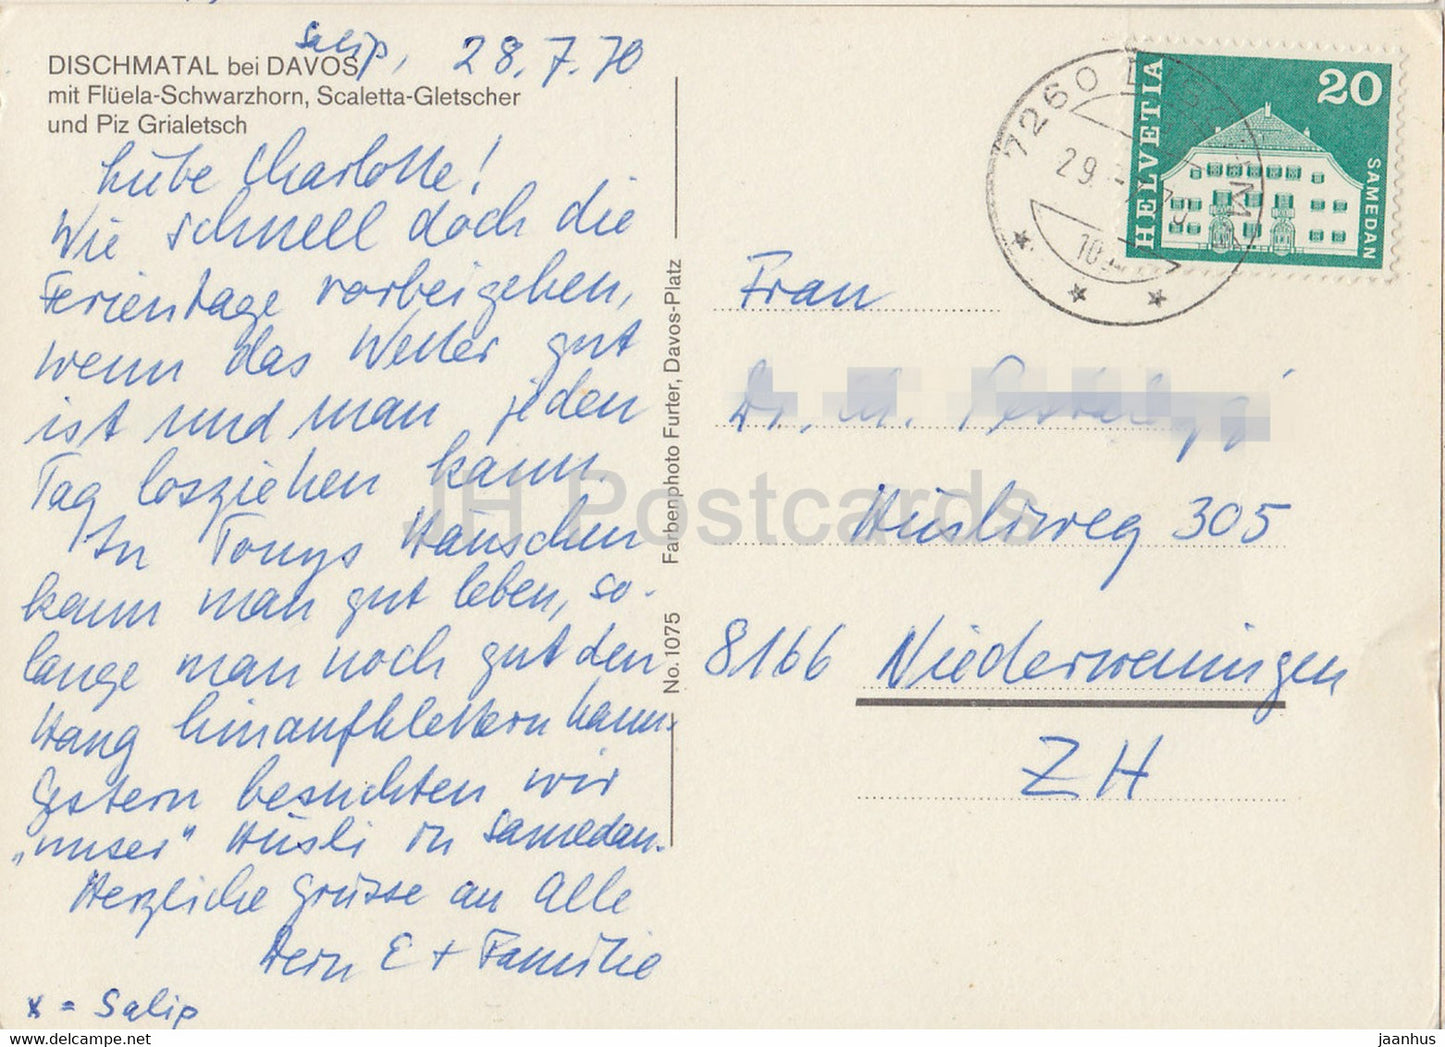 Salip, 28.7.70
DISCHMATAL bei DAVOS
mit Flüela-Schwarzhorn, Scaletta-Gletscher
und Piz Grialetsch
Liebe Charlotte!
Wie schnell doch die
Ferientage vorbeigehen,
wenn das Wetter gut
ist und man jeden
Tag losziehen kann.
In Tonys Häuschen
kann man gut leben, so-
lange man noch gut den
Hang hinaufklettern kann.
Gestern besuchten wir
„unser" Hüsli in Samedan.
Herzliche Grüsse an alle
E + Familie
x = Salip
No. 1075 Farbenphoto Furter, Davos-Platz
7260 D
29.
10
HELVETIA
20
SAMEDAN
Frau
Dr. M.
Hüsliweg 305
8166 Niederweningen
ZH
JH Postcards
jaanhus @ delcampe.net